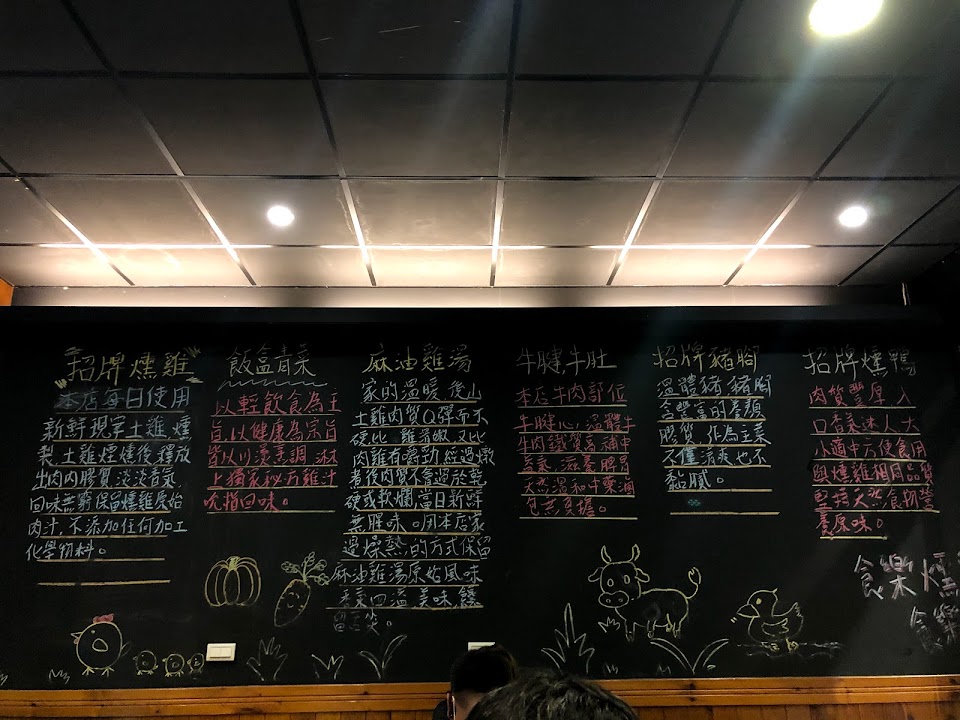 招牌燻雞
本店每日使用
新鮮現宰土雞燻
製土雞燻燻後釋放
出肉內膠質淡淡香氣
回味無窮保留燻雞原始
肉汁,不添加任何加工
化學物料。
飯盒青菜
以輕飲食為主
旨,以健康為宗旨
皆以川燙烹調淋
上獨家秘方雞汁
吮指回味。
麻油雞湯
家的溫暖,後山
土雞肉質Q彈而不
硬比
雞清嫩又比
肉雞有嚼勁經過燉
煮後肉質不會過於乾
硬或軟爛,當日新鮮
無腥味。用本店家
燥熱的方式保留
麻油雞湯原始風味
香菜四溫美味
牛腱牛肚
本店牛肉部位
牛腱心,溫體牛
牛肉鐵質高補中
益氣,滋養脾胃
天然溫和中藥滷
包無負擔。
招牌豬腳
溫體豬豬腳
含豐富的
膠質,作為主菜
不僅清爽也不
黏膩。
招牌燻鴨
肉質豐厚入
口香美迷人大
小適中方便食用
與燻雞相同品質
堅持天然食物營
養原味。
食樂燻
食樂